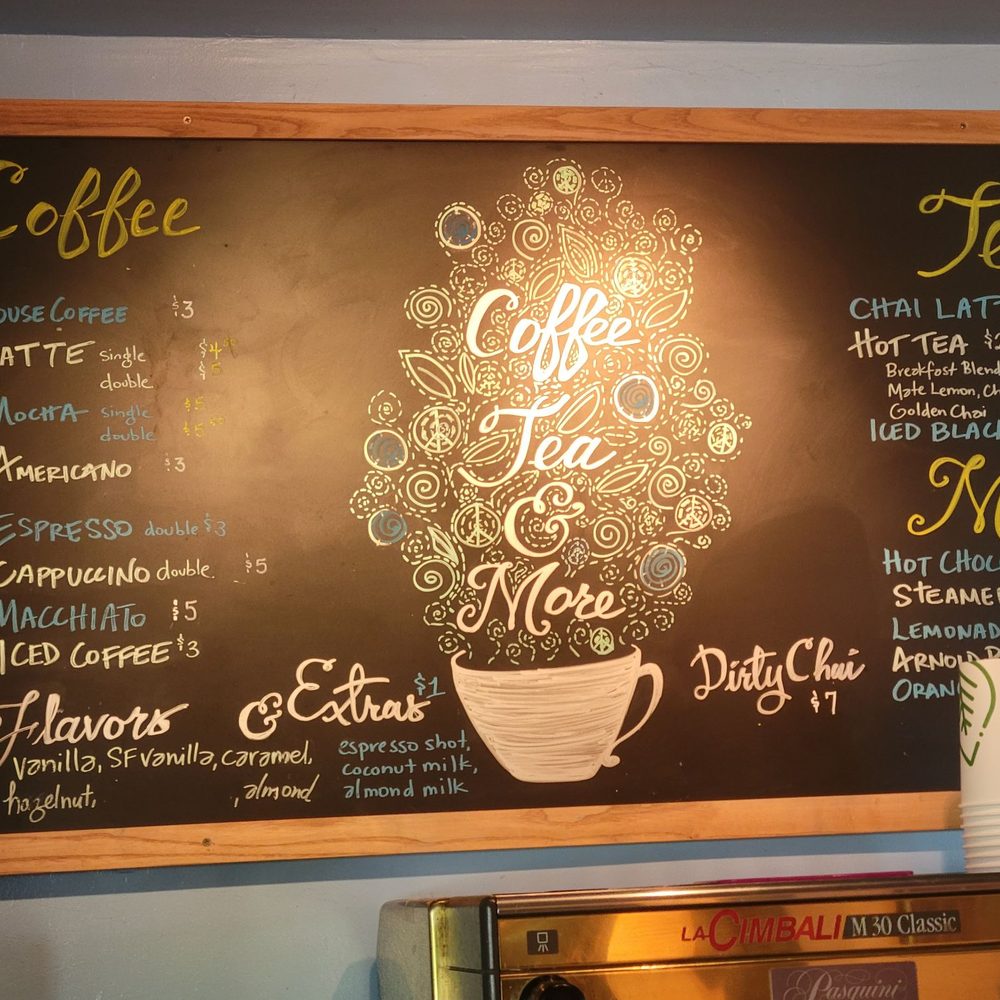 Coffee
OUSE COFFEE $3
ATTE single $4
double $5
MOCHA single $5
double $5
AMERICANO $3
ESPRESSO double $3
CAPPUCCINO double $5
MACCHIATO $5
ICED COFFEE $3
Flavors
vanilla, SF vanilla, caramel,
hazelnut, , almond
& Extras $1
espresso shot,
coconut milk,
almond milk
Coffee
Tea
&
More
Dirty Chai
$7
Te
CHAI LATT
HOT TEA $2
Breakfast Blend
Mate Lemon, Ch
Golden Chai
ICED BLACK
M
HOT CHOC
STEAMER
LEMONAD
ARNOLD P
ORAN
LA CIMBALI M 30 Classic
Pasquini